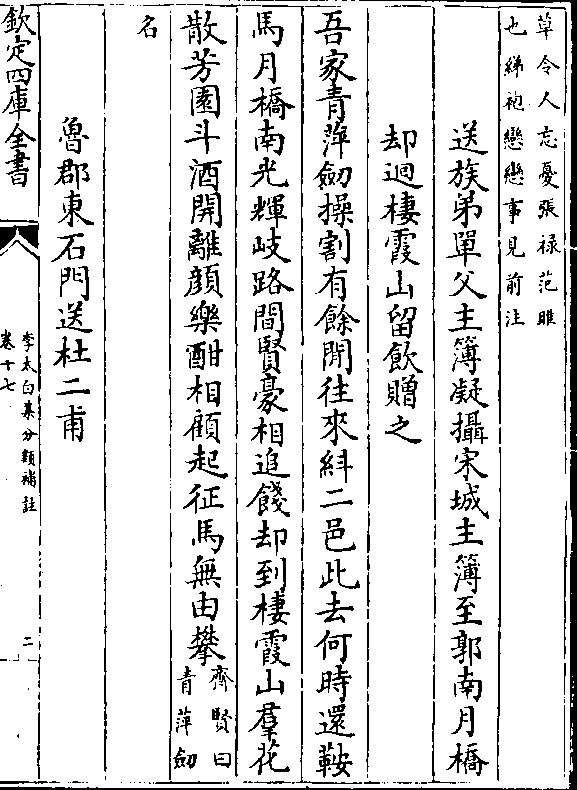 草令人忘憂張禄范雎
也綈袍戀戀事見前注
送族弟單父主簿凝攝宋城主簿至郭南月橋
却迴棲霞山留飲贈之
吾家青萍劒操割有餘閒往來糾二邑此去何時還鞍
馬月橋南光輝岐路間賢豪相追餞却到棲霞山羣花
散芳園斗酒開離顔樂酣相顧起征馬無由攀
齊賢曰
青萍劒
名
魯郡東石門送杜二甫
欽定四庫全書
李太白集分類補註
卷十七
二